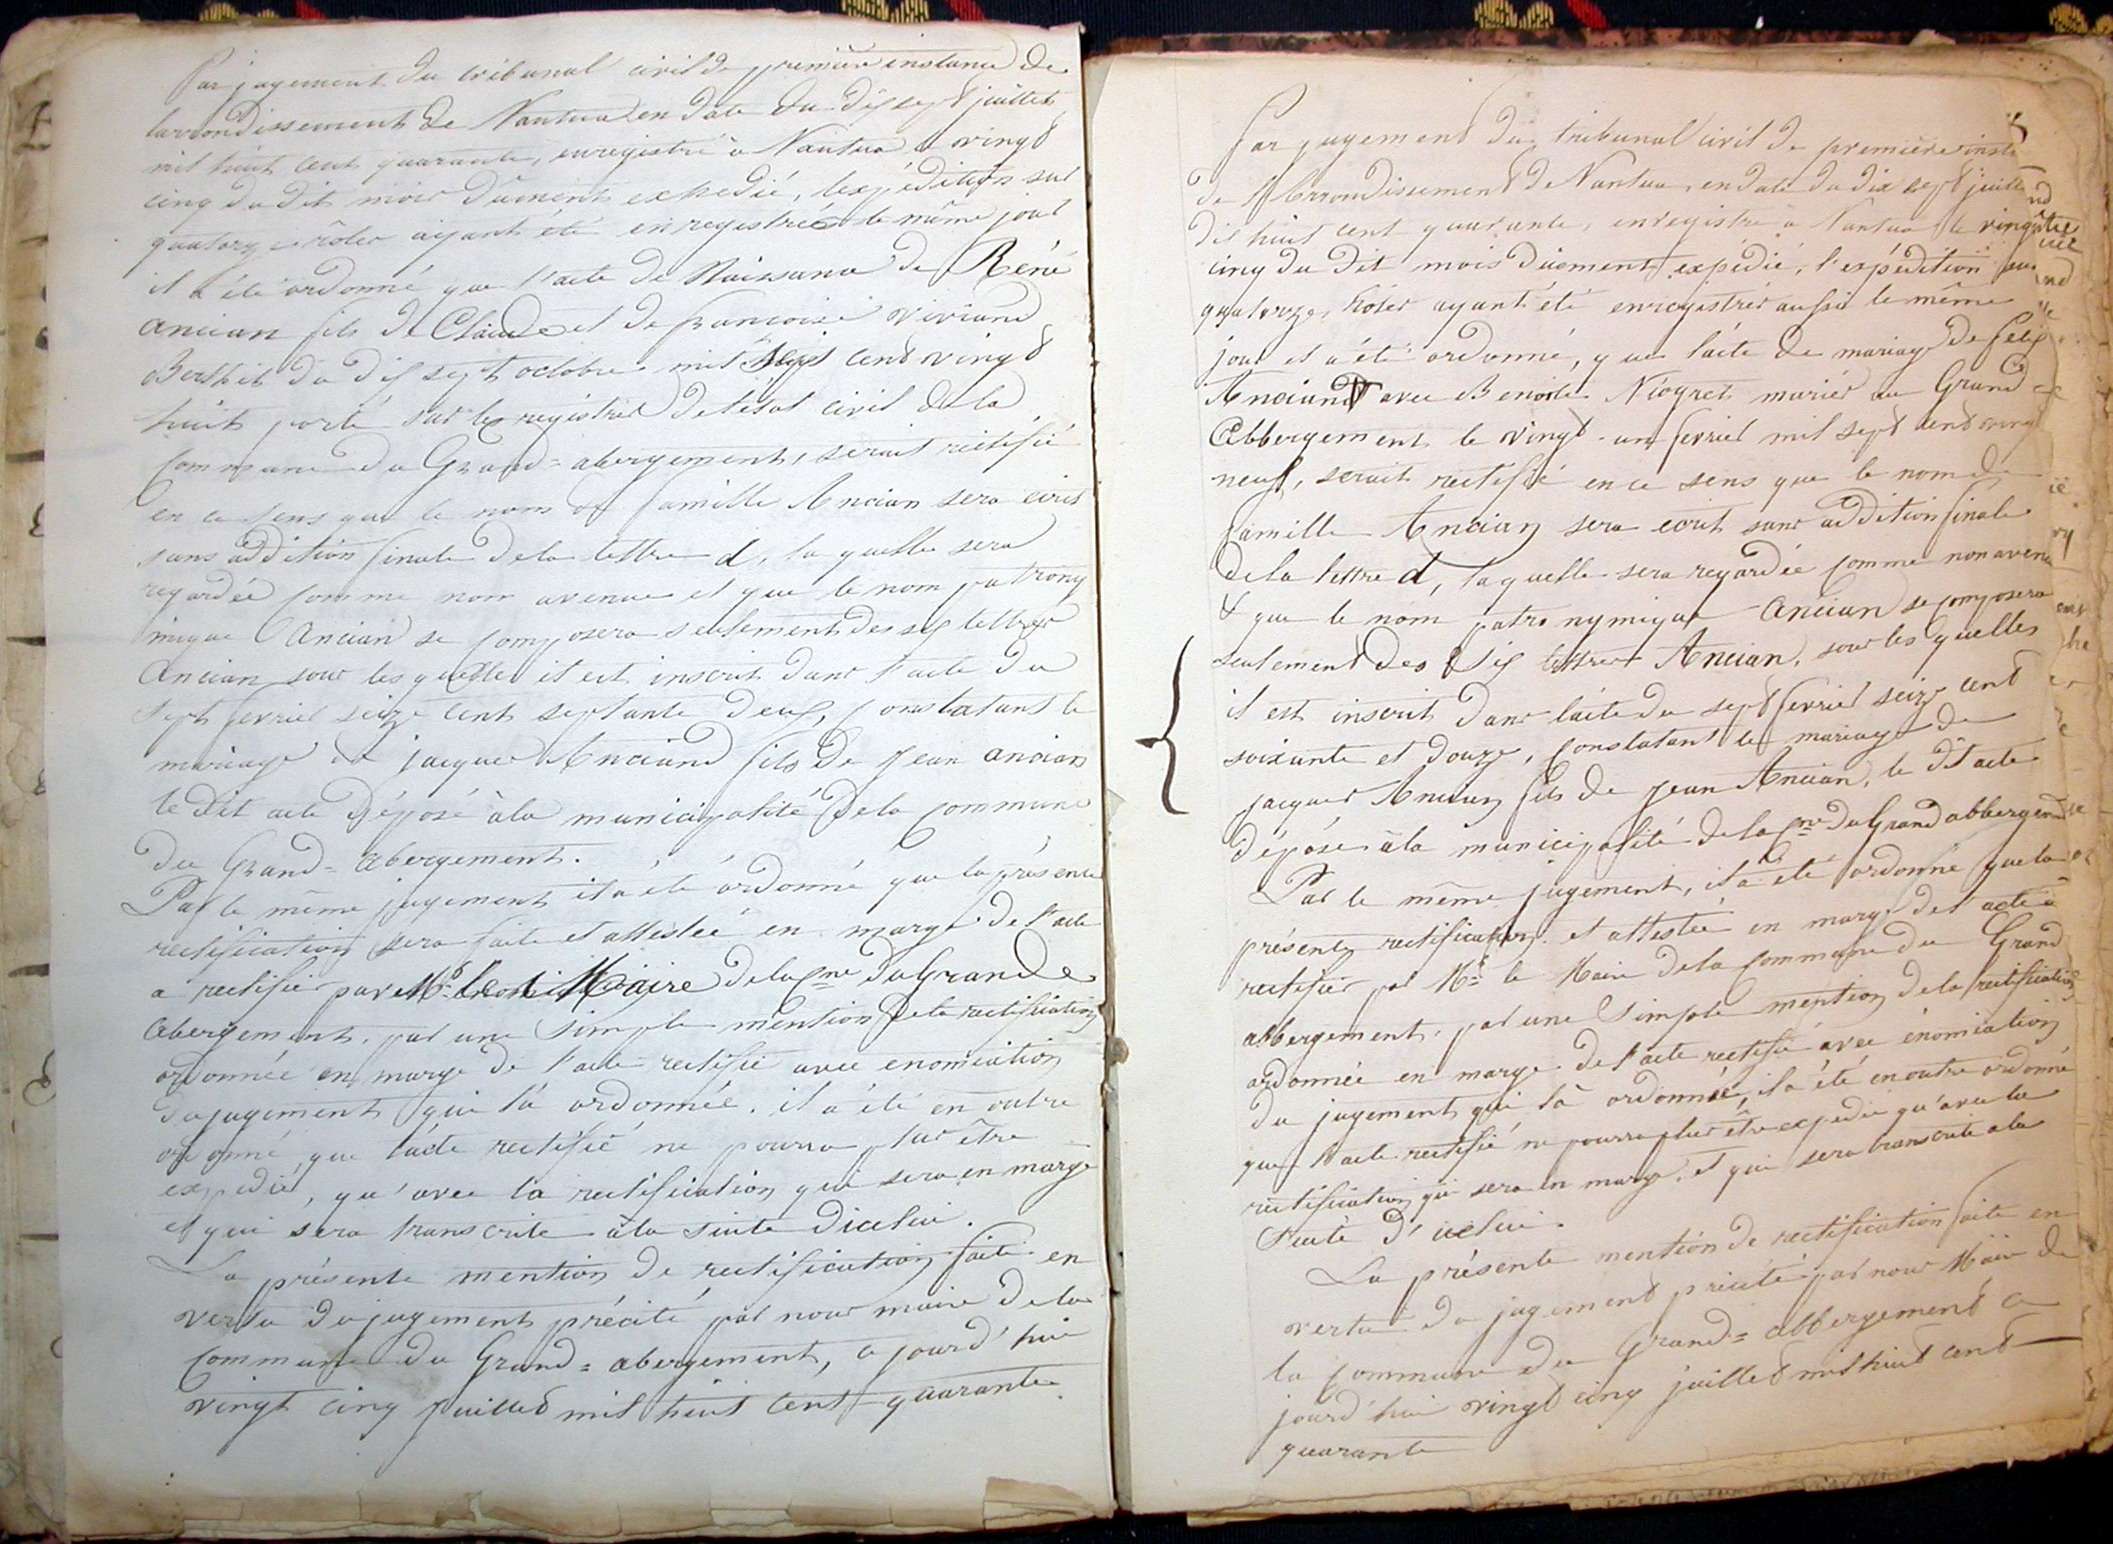 Par jugement du tribunal civil de première instance de
larrondissement de Nantua en date du dix sept juillet
mil huit cent quarante, enregistré à Nantua le vingt
cinq du dit mois dûment expédié, l'expédition sur
quatorze rôles ayant été enregistrée le même jour
il a été ordonné que l'acte de Naissance de Réné
ancian fils de Claude et de francoise viviand
Berthet du dix sept octobre mil sept cent vingt
huit porté sur les registres de létat civil de la
Commune du Grand=abergement, serait rectifié
en ce sens que le nom de famille Ancian sera ecrit
sans addition finale de la lettre d, la quelle sera
regardée comme non avenue et que le nom patrony
mique Ancian se composera seulement des six lettres
Ancian sous les quelles il est inscrit dans l'acte du
sept fevrier seize cent septante deux, constatant le
mariage de jacques Anciand fils de Jean ancian
le dit acte déposé à la municipalité de la commune
du Grand=abergement.
Par le même jugement il a été ordonné que la présente
rectification sera faite et attestée en marge de l'acte
a rectifier par Mr. le Maire de la Cne du Grande
abergement, par une simple mention de la rectification
ordonnée en marge de l'acte rectifié avec enonciation
du jugement qui l'a ordonnée. il a été en outre
ordonné que l'acte rectifié ne pourra plus être
expédié, qu'avec la rectification qui sera en marge
et qui sera transcrite à la suite d'icelui.
La présente mention de rectification faite en
vertu du jugement précité par nous maire de la
commune du Grand=abergement, a jourd'hui
vingt cinq juillet mil huit cent quarante
Par jugement du tribunal civil de première inst
de l'Arrondissement de Nantua, en date du dix sept juillet
dix huit cent quarante, enregistré à Nantua le vingt
cinq du dit mois dûement expédié, l'expédition sur
quatorze rôles ayant été enregistrée aussi le même
jour et a été ordonné, que l'acte de mariage de felix
Anciand avec Benoite Niogret mariés au Grand=
Abbergement le vingt-un fevrier mil sept cent vingt
neuf, serait rectifié en ce sens que le nom de
famille Ancian sera ecrit sans addition finale
de la lettre d, laquelle sera regardée comme non avenue
& que le nom patronymique Ancian se composera
seulement des six lettres Ancian, sous les quelles
il est inscrit dans l'acte du sept fevrier seize cent
soixante et douze, constatant le mariage de
jacques Ancian fils de jean Ancian, le dit acte
déposé à la municipalité de la Cne du Grand abbergement
Par le même jugement, il a été ordonné que la
présente rectification et attestée en marge de l'acte à
rectifier par Mr le Maire de la commune du Grand
abbergement, par une simple mention de la rectification
ordonnée en marge de l'acte rectifié avec énonciation
du jugement qui l'a ordonnée, il a été en outre ordonné
que l'acte rectifié ne pourra plus être expédié qu'avec la
rectification qui sera en marge, et qui sera transcrite a la
suite d'icelui.
La présente mention de rectification faite en
vertu du jugement précité par nous Maire de
la commune du Grand=abbergement a
jourd'hui vingt cinq juillet mil huit cent
quarante